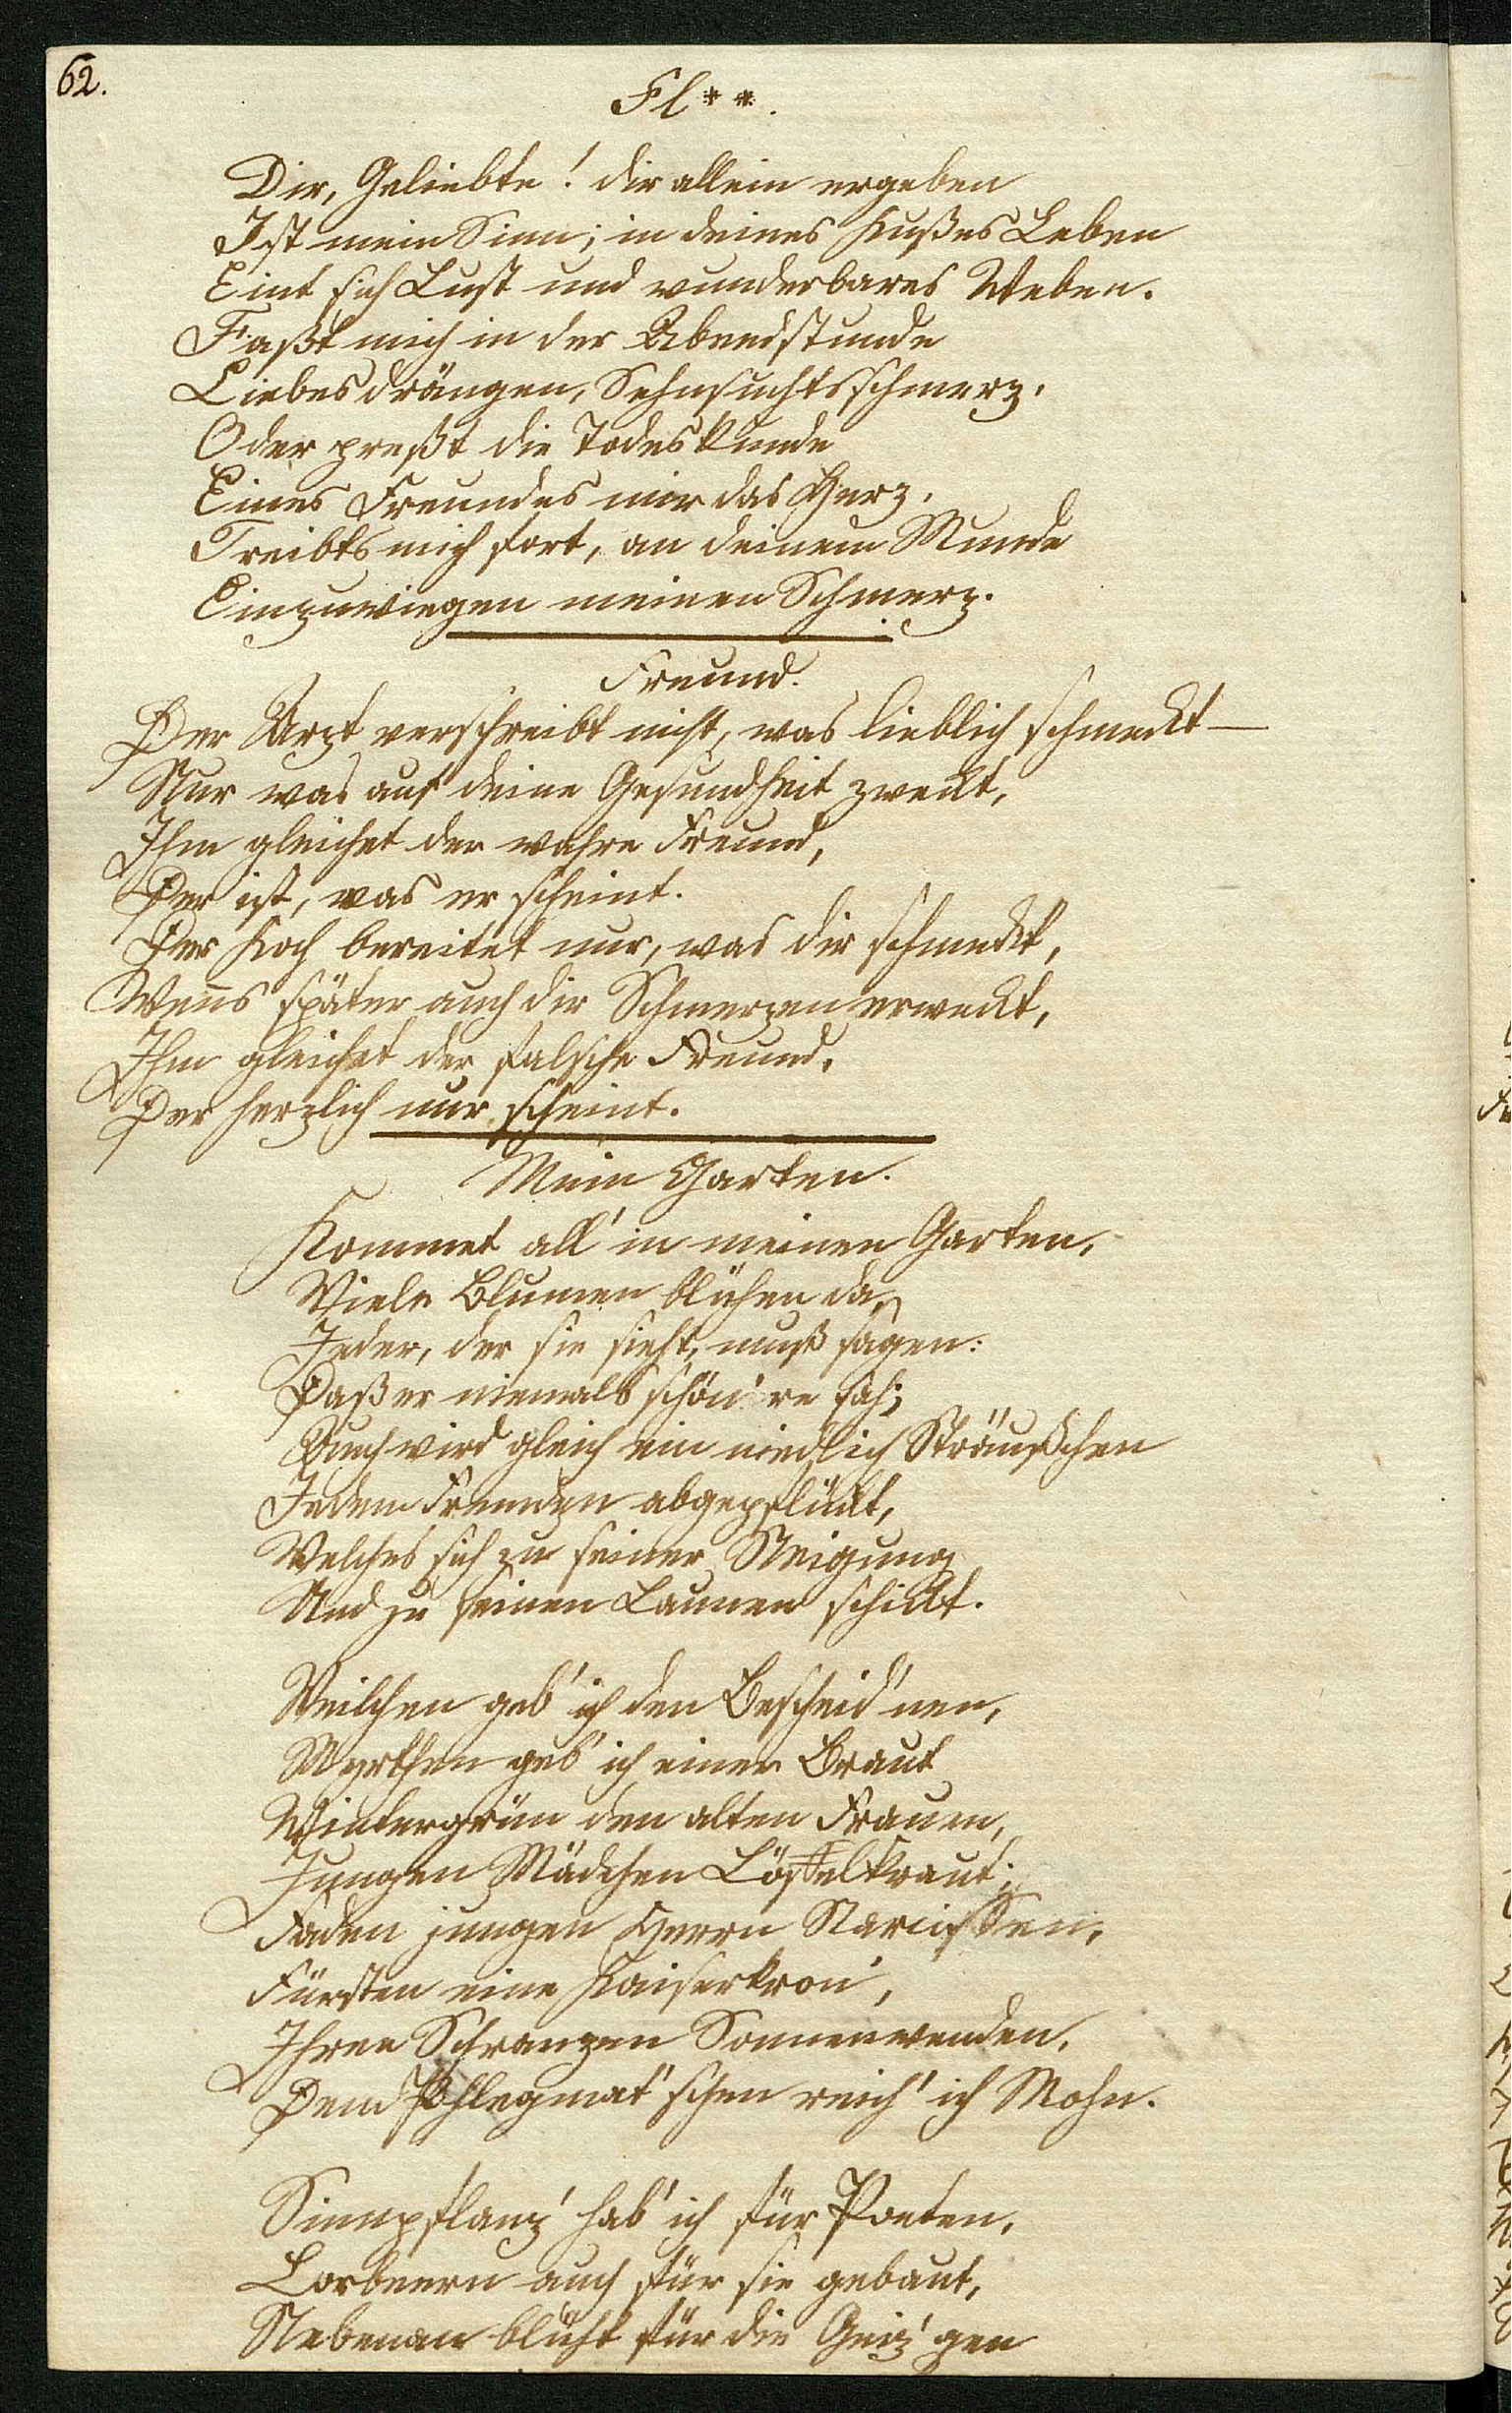 62.
Fl**.
Dir, Geliebte! dir allein ergeben
Ist mein Sinn; in deines Kußes Leben
Eint sich Lust und wunderbares Weben.
Faßt mich in der Abendstunde
Liebesdrängen, Sehnsuchtsschmerz,
Oder preßt die Todeskunde
Eines Freundes mir das Herz,
Treibts mich fort, an deinem Munde
Einzuwiegen meinen Schmerz.
Freund.
Der Arzt verschreibt nicht, was lieblich schmeckt —
Nur was auf deine Gesundheit zweckt,
Ihm gleichet der wahre Freund,
Der ist, was er scheint.
Der Koch bereitet nur, was dir schmeckt,
Wen̄s später auch dir Schmerzen erweckt,
Ihm gleichet der falsche Freund,
Der herzlich nur scheint.
Mein Garten.
Kommet all' in meinen Garten,
Viele Blumen blühen da,
Jeder, der sie sieht, muß sagen:
Daß er niemals schön're sah;
Auch wird gleich ein niedlich Sträußchen
Jedem Fremden abgepflückt,
Welches sich zu seiner Neigung
Und zu seinen Launen schickt.
Veilchen geb' ich den Bescheid'nen,
Myrthen geb' ich einer Braut
Wintergrün den alten Frauen,
Jungen Mädchen Löffelkraut;
Faden jungen Herrn Narcissen,
Fürsten eine Kaiserkron',
Ihren Schranzen Sonnenwenden,
Dem Phlegmat'schen reich' ich Mohn.
Sinnpflanz' hab' ich für Poeten,
Lorbeern auch für sie gebaut,
Nebenan blüht für die Geiz'gen